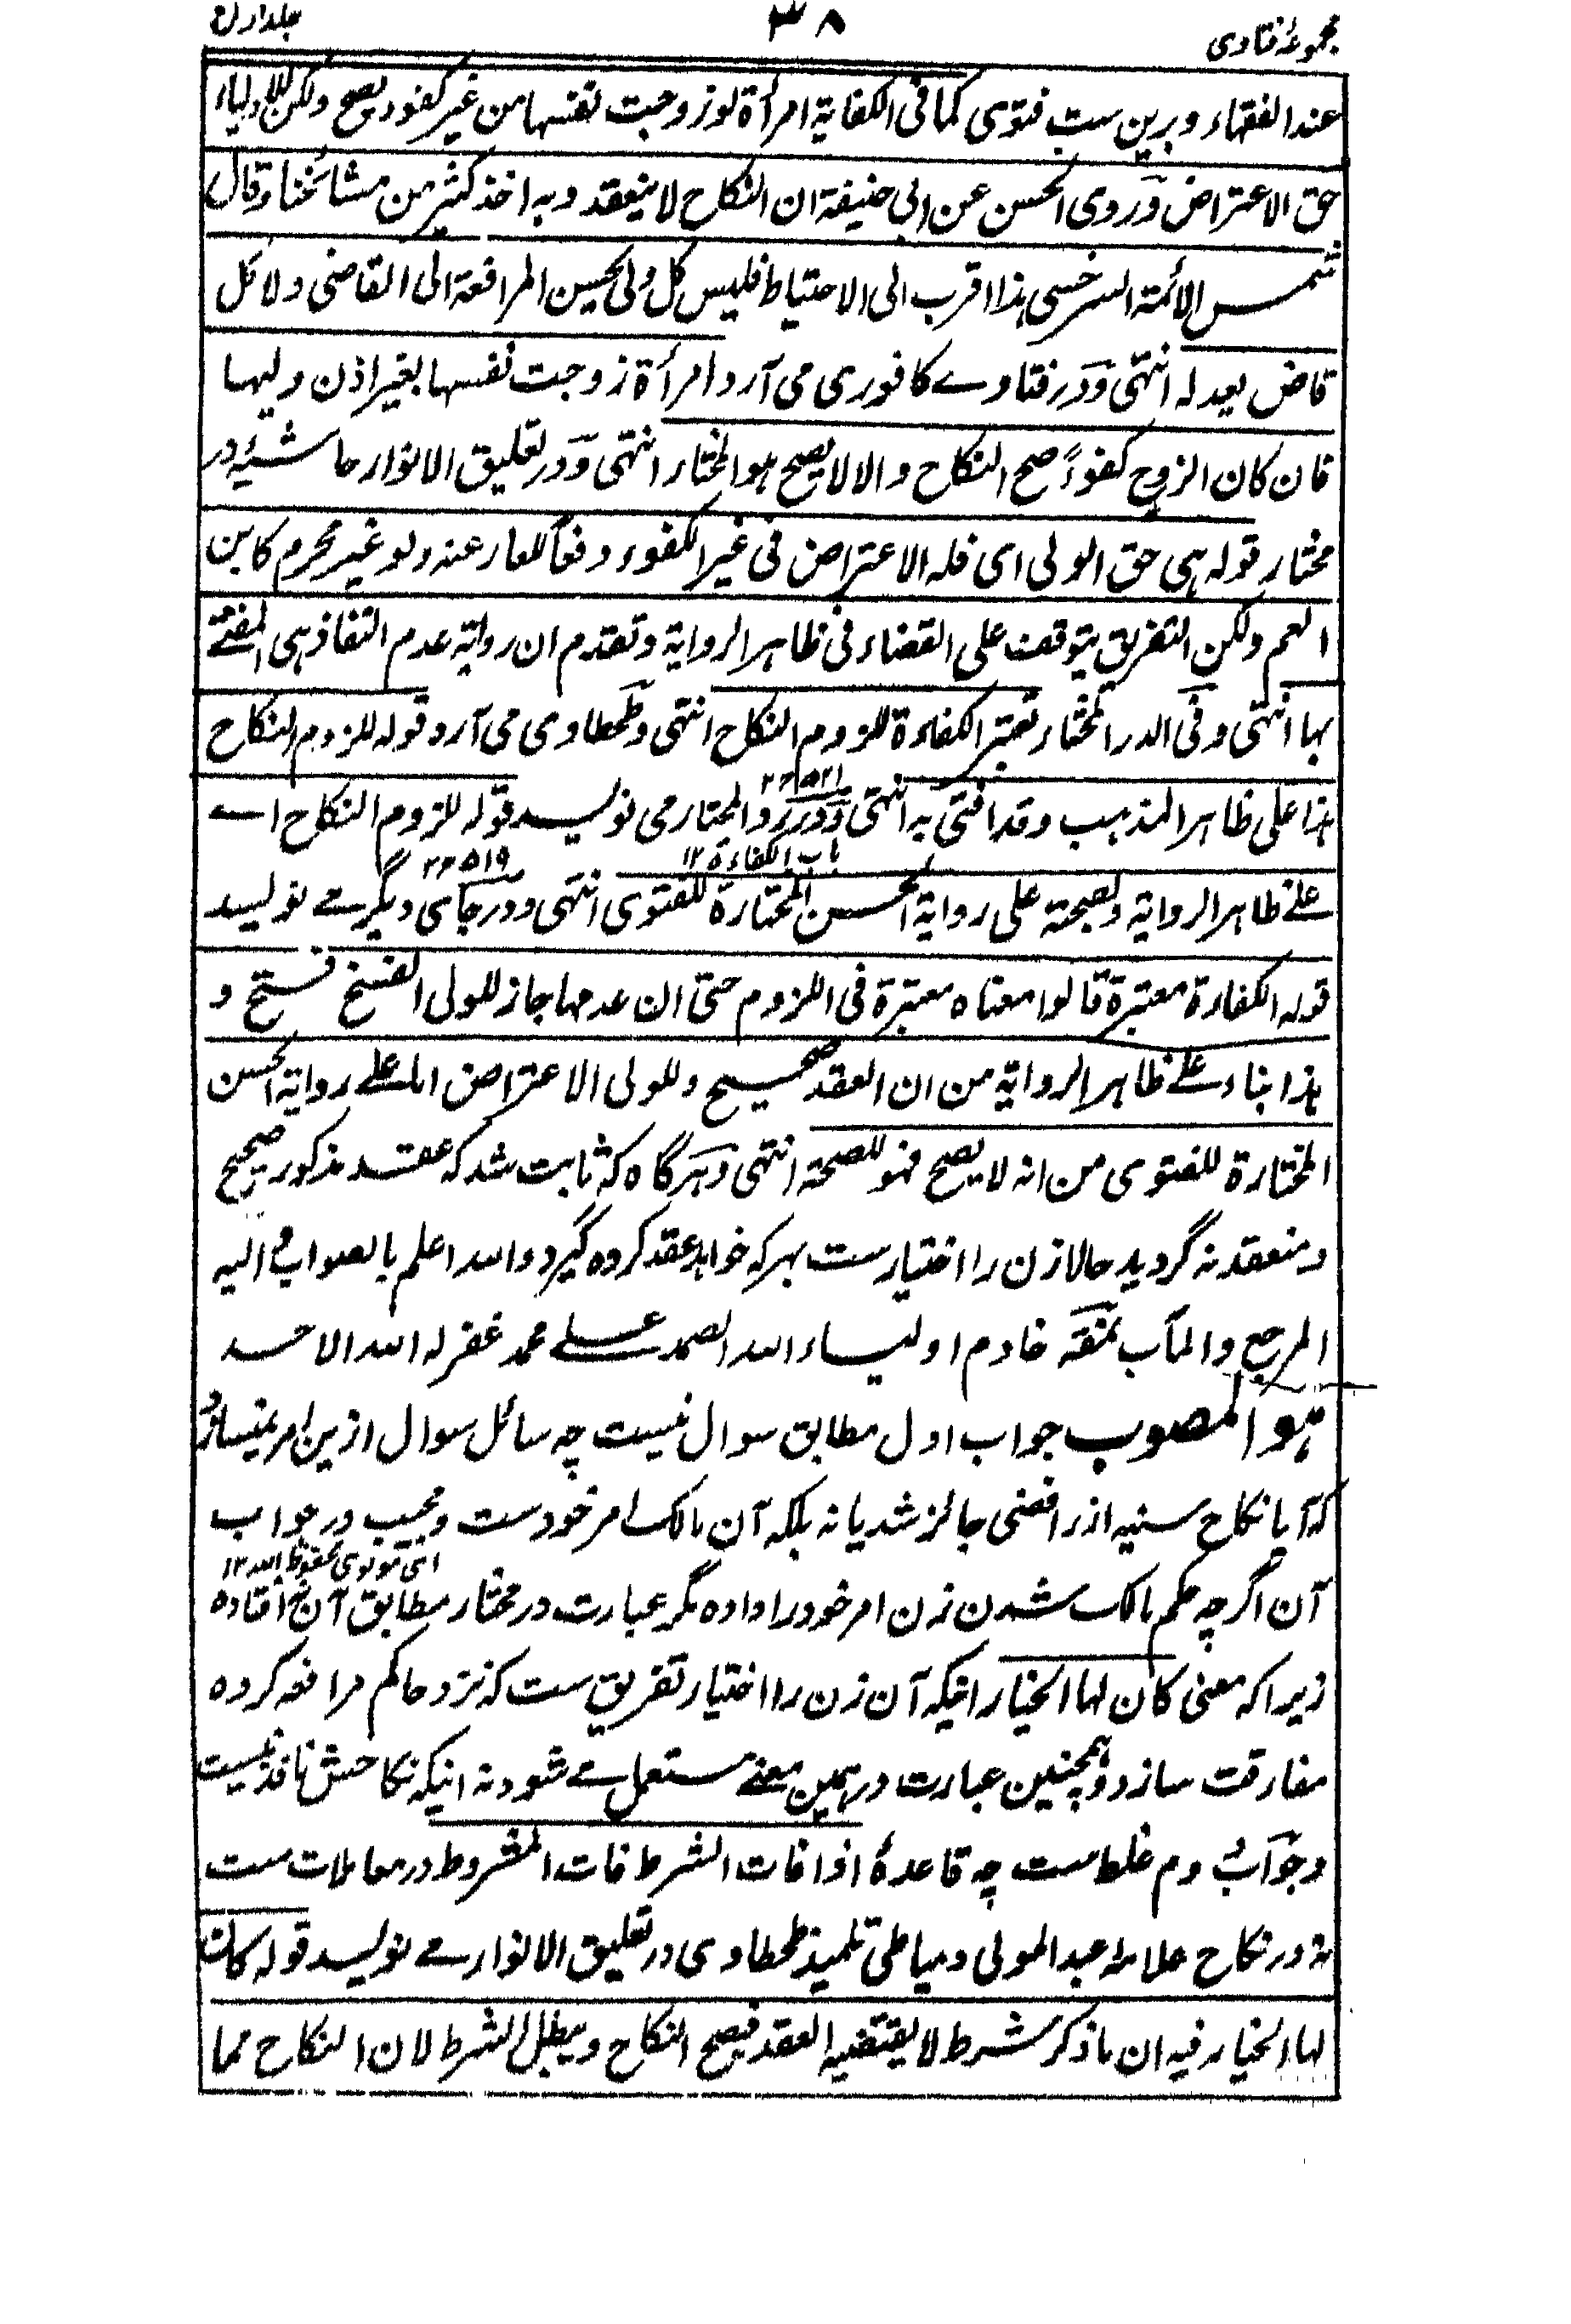 مجموعۂ فتاوی ٣٨ جلد اول
عند الفقهاء و برین ست فتوی کما فی الکفایة امرأة لو زوجت نفسها من غیر کفو یصح ولکن للاولیاء
حق الاعتراض وروی الحسن عن ابی حنیفة ان النکاح لا ینعقد وبه اخذ کثیر من مشائخنا وقال
شمس الأئمة السرخسی هذا اقرب الی الاحتیاط فلیس کل ولی یحسن المرافعة الی القاضی ولا کل
قاض یعدله انتهی ودر فتاوے کافوری می آرد امرأة زوجت نفسها بغیر اذن ولیها
فان کان الزوج کفوءً صح النکاح والا لا یصح هو المختار انتهی ودر تعلیق الانوار حاشیۂ در
مختار قوله هی حق الولی ای فله الاعتراض فی غیر الکفوء دفعاً للعار عنه ولو غیر محرم کابن
العم ولکن التفریق یتوقف علی القضاء فی ظاهر الروایة وتقدم ان روایة عدم النفاذ هی المفتے
بها انتهی وفی الدر المختار تعتبر الکفاءة للزوم النکاح انتهی وطحطاوی می آرد قوله للزوم النکاح
هذا علی ظاهر المذهب وقد افتی به انتهی ودر رد المحتار می نویسد قوله للزوم النکاح اے
باب الکفاءة ١٢
علے ظاهر الروایة ولصحته علی روایة الحسن المختارة للفتوی انتهی ودر جای دیگر مے نویسد
قوله الکفاءة معتبرة قالوا معناه معتبرة فی اللزوم حتی ان عدمها جاز للولی الفسخ فتح و
هذا بناء علے ظاهر الروایة من ان العقد صحیح وللولی الاعتراض اما علے روایة الحسن
المختارة للفتوی من انه لا یصح فهو للصحة انتهی وهرگاه که ثابت شد که عقد مذکور صحیح
و منعقد نه گردید حالا زن را اختیارست بهر که خواهد عقد کرده گیرد والله اعلم بالصواب والیه
المرجع والمآب نمقه خادم اولیاء الله الصمد علے محمد غفر له الله الاحد
هو المصوب جواب اول مطابق سوال نیست چه سائل سوال ازین امر نمیسازد
که آیا نکاح سنیه از رافضی جائز شد یا نه بلکه آن مالک امر خودست و مجیب در جواب
ای مولوی محفوظ الله ١٢
آن اگرچه حکم مالک شدن زن امر خود را داده مگر عبارت در مختار مطابق آن نه افتاده
زیرا که معنی کان لها الخیار اینکه آن زن را اختیار تفریق ست که نزد حاکم مرافعه کرده
مفارقت سازد وهمچنین عبارت در همین معنے مستعمل مے شود نه اینکه نکاحش نافذ نیست
و جواب دوم غلط ست چه قاعدۂ اذا فات الشرط فات المشروط در معاملات ست
نه در نکاح علامه عبد المولی دمیاطی تلمیذ طحطاوی در تعلیق الانوار مے نویسد قوله کان
لها الخیار فیه ان ما ذکر شرط لا یقتضیه العقد فیصح النکاح ویبطل الشرط لان النکاح مما